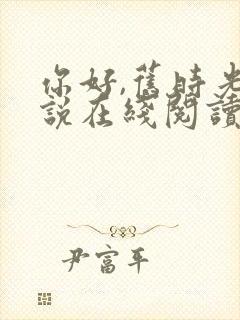 你好,舊時光
說在綫閱讀
尹富平